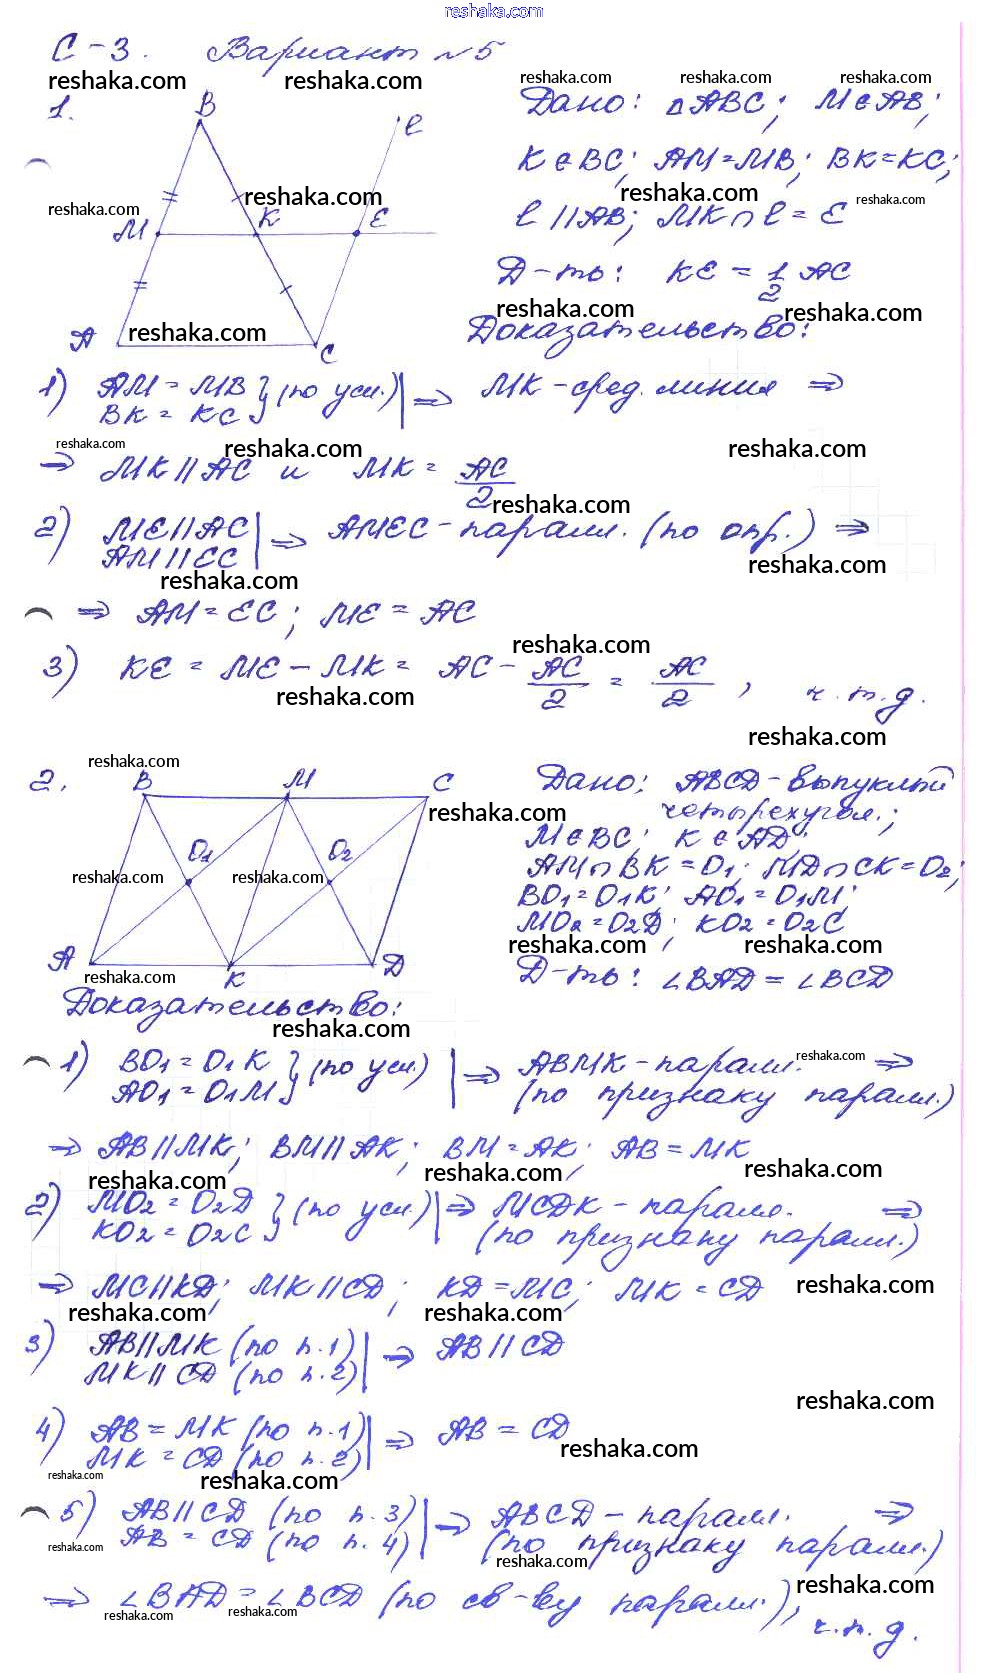 reshaka.com
С-3. Вариант №5
1.
B
l
M
K
E
A
C
Дано: △ABC; M∈AB;
K∈BC; AM=MB; BK=KC;
l∥AB; MK∩l=E
Д-ть: KE = 1/2 AC
Доказательство:
1) AM = MB
BK = KC } (по усл.) | ⇒ MK - сред. линия ⇒
⇒ MK ∥ AC и MK = AC/2
2) ME∥AC
AM∥EC | ⇒ AMEC - паралл. (по опр.) ⇒
⇒ AM = EC; ME = AC
3) KE = ME - MK = AC - AC/2 = AC/2, ч.т.д.
2.
B M C
O1 O2
A K D
Дано: ABCD - выпуклый
четырехугол.;
M∈BC; K∈AD;
AM∩BK=O1; MD∩CK=O2;
BO1=O1K; AO1=O1M;
MO2=O2D; KO2=O2C
Д-ть: ∠BAD = ∠BCD
Доказательство:
1) BO1=O1K
AO1=O1M } (по усл.) | ⇒ ABMK - паралл. ⇒
(по признаку паралл.)
⇒ AB∥MK; BM∥AK; BM=AK; AB=MK
2) MO2=O2D
KO2=O2C } (по усл.) | ⇒ MCDK - паралл. ⇒
(по признаку паралл.)
⇒ MC∥KD; MK∥CD; KD=MC; MK=CD
3) AB∥MK (по п.1)
MK∥CD (по п.2) | ⇒ AB∥CD
4) AB = MK (по п.1)
MK = CD (по п.2) | ⇒ AB = CD
5) AB∥CD (по п.3)
AB = CD (по п.4) | ⇒ ABCD - паралл. ⇒
(по признаку паралл.)
⇒ ∠BAD = ∠BCD (по св-ву паралл.), ч.т.д.